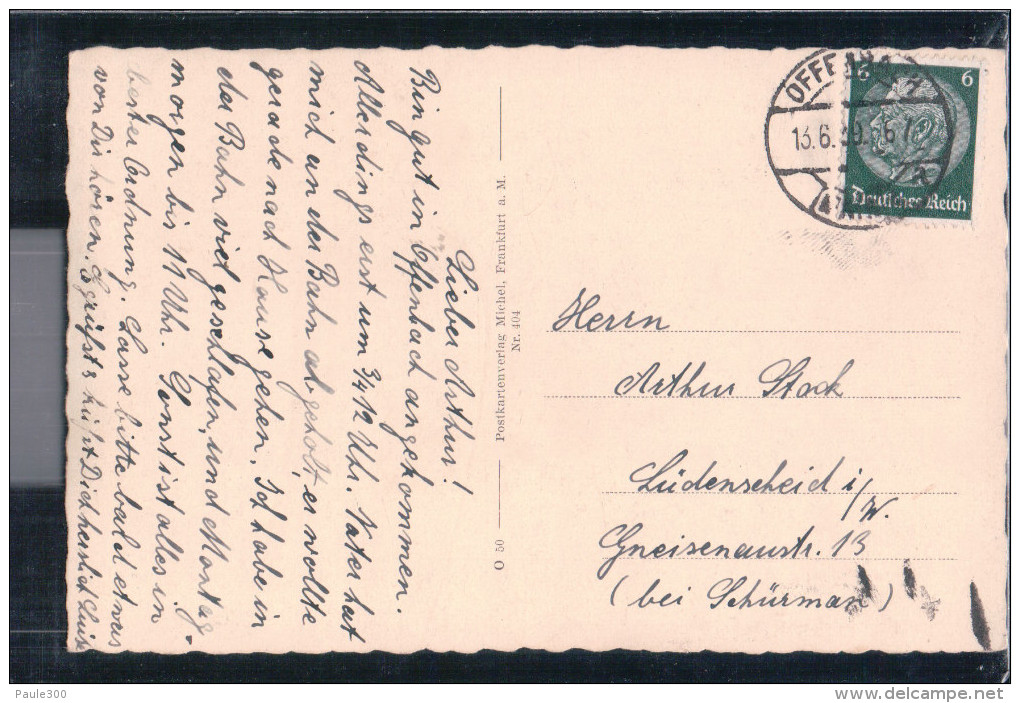 Lieber Arthur!
Bin gut in Offenbach angekommen.
Allerdings erst um 3/4 12 Uhr. Vater hat
mich an der Bahn abgeholt, er wollte
gerade nach Hause gehen. Ich habe in
der Bahn viel geschlafen, und Montag-
morgen bis 11 Uhr. Sonst ist alles in
bester Ordnung. Lasse bitte bald etwas
von Dir hören. Es grüßt & küßt Dich herzlich Luise
O 50
Postkartenverlag Michel, Frankfurt a. M.
Nr. 404
OFFENBA
13.6.39.
6
6
Deutsches Reich
Herrn
Arthur Stock
Lüdenscheid i/W.
Gneisenaustr. 13
(bei Schürman)
Paule300
www.delcampe.net